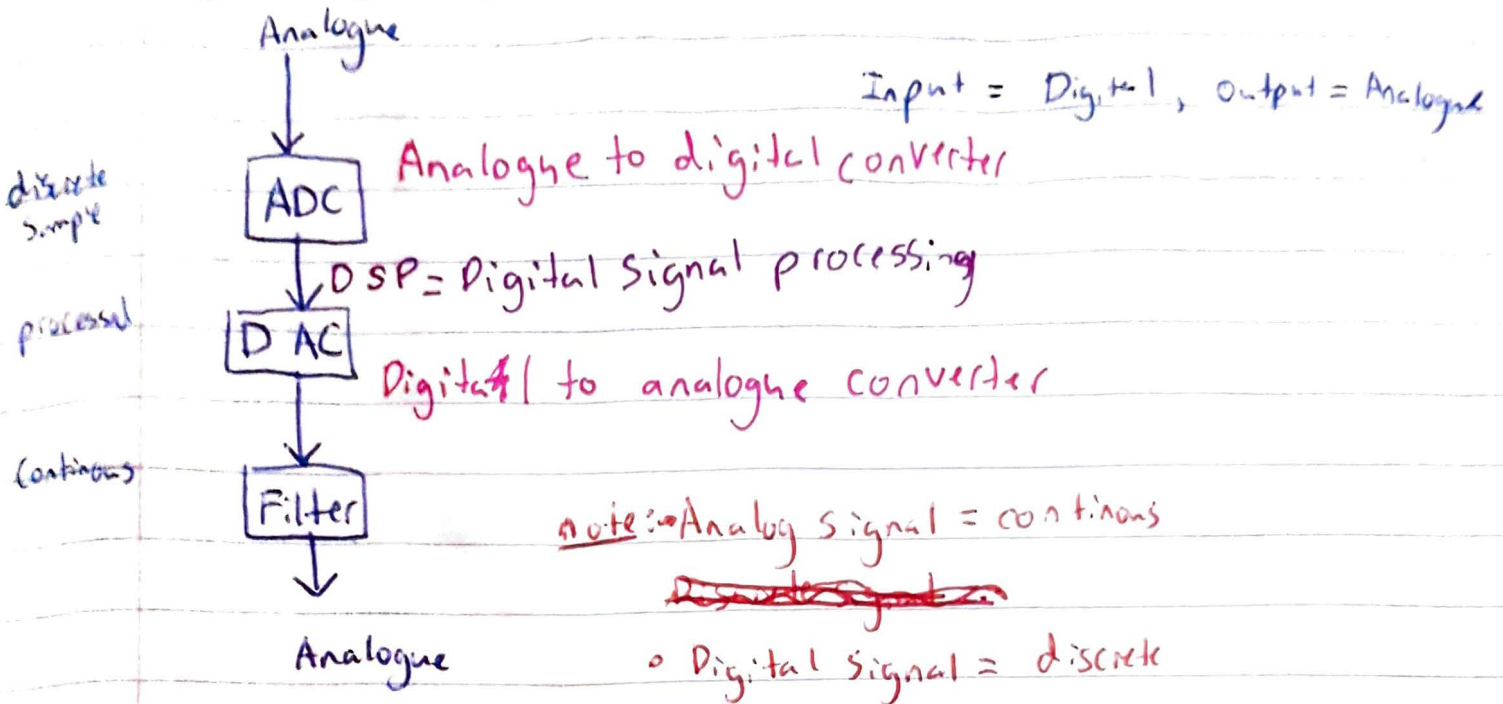 Analogue
Input = Digital, output = Analogue
Analogue to digital converter
discrete
sample
ADC
DSP = Digital signal processing
processed
DAC
Digital to analogue converter
Continous
Filter
note:- Analog signal = continous
Analogue
• Digital signal = discrete